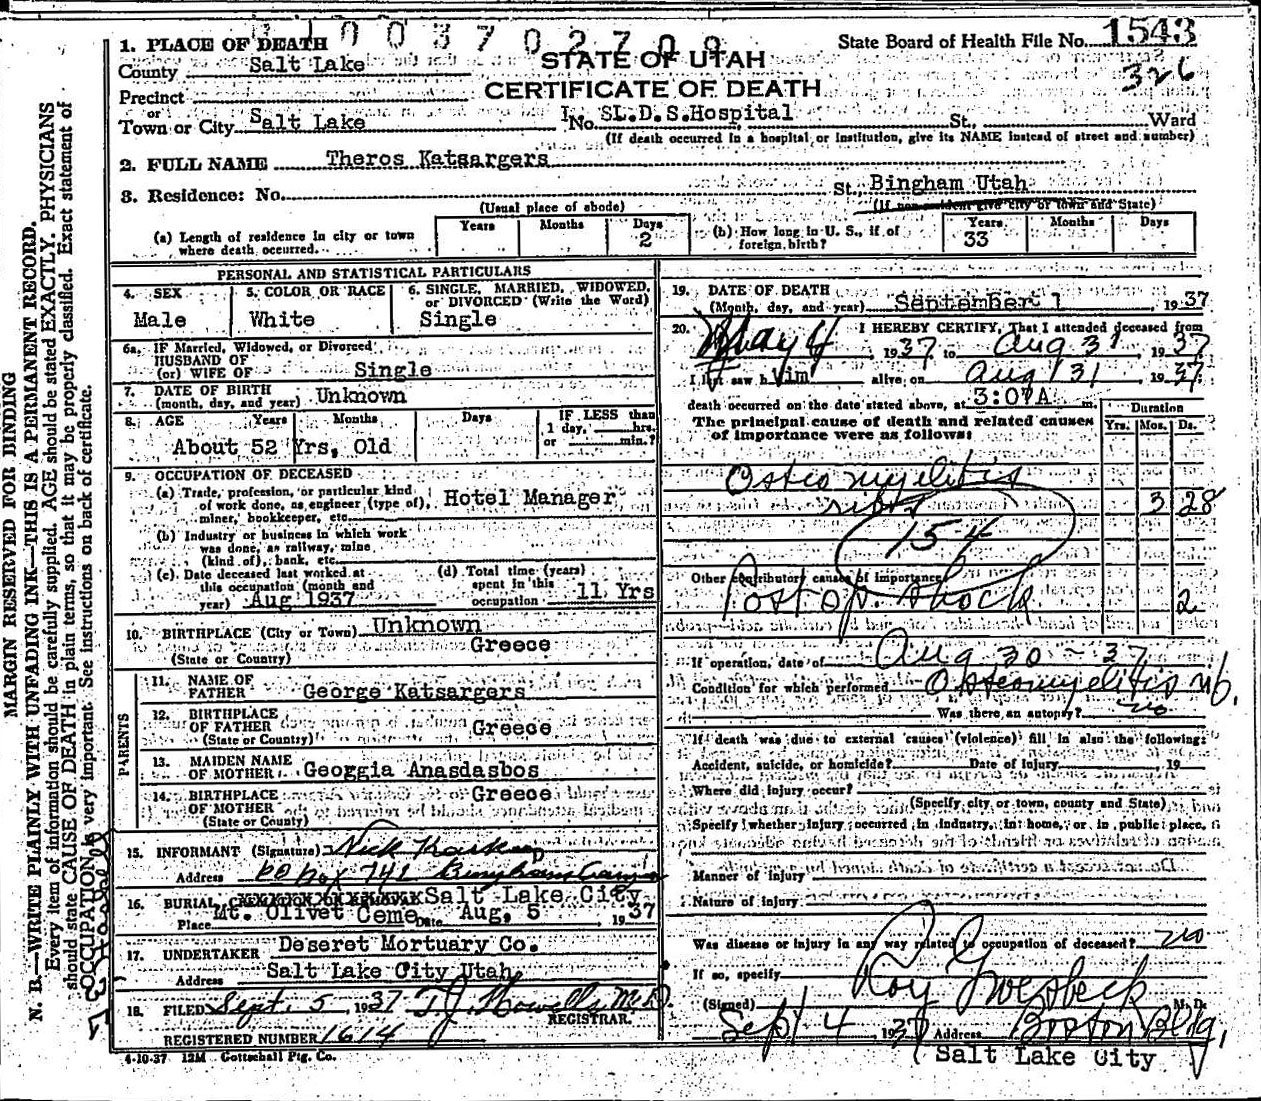 31003702700
State Board of Health File No. 1543
326
STATE OF UTAH
CERTIFICATE OF DEATH
1. PLACE OF DEATH
County Salt Lake
Precinct
or
Town or City Salt Lake No. L.D.S.Hospital St., Ward
(If death occurred in a hospital or institution, give its NAME instead of street and number)
2. FULL NAME Theros Katsargers
3. Residence: No. St., Bingham Utah
(Usual place of abode) (If non-resident give city or town and State)
(a) Length of residence in city or town where death occurred. Years Months Days 2
(b) How long in U. S., if of foreign birth? Years 33 Months Days
PERSONAL AND STATISTICAL PARTICULARS
4. SEX Male
5. COLOR OR RACE White
6. SINGLE, MARRIED, WIDOWED, or DIVORCED (Write the Word) Single
6a. IF Married, Widowed, or Divorced
HUSBAND OF
(or) WIFE OF Single
7. DATE OF BIRTH
(month, day, and year) Unknown
8. AGE Years Months Days IF LESS than 1 day, hrs. or min.?
About 52 Yrs, Old
9. OCCUPATION OF DECEASED
(a) Trade, profession, or particular kind of work done, as engineer (type of), miner, bookkeeper, etc. Hotel Manager
(b) Industry or business in which work was done, as railway, mine (kind of), bank, etc.
(c) Date deceased last worked at this occupation (month and year) Aug 1937
(d) Total time (years) spent in this occupation 11 Yrs
10. BIRTHPLACE (City or Town) Unknown
(State or Country) Greece
PARENTS
11. NAME OF FATHER George Katsargers
12. BIRTHPLACE OF FATHER
(State or Country) Greece
13. MAIDEN NAME OF MOTHER Georgia Anasdasbos
14. BIRTHPLACE OF MOTHER
(State or County) Greece
15. INFORMANT (Signature) Nick
Address PO Box 741 Bingham Canyon
16. BURIAL, CREMATION OR REMOVAL Salt Lake City
Place Mt. Olivet Ceme Date Aug, 5 1937
17. UNDERTAKER Deseret Mortuary Co.
Address Salt Lake City Utah
18. FILED Sept. 5, 1937 T.J. Howells M.D.
REGISTRAR.
REGISTERED NUMBER 1614
4-10-37 12M Gottschall Ptg. Co.
19. DATE OF DEATH
(Month, day, and year) September 1 1937
20. I HEREBY CERTIFY, That I attended deceased from
May 4, 1937 to Aug 31, 1937
I last saw him alive on Aug 31 1937
death occurred on the date stated above, at 3:07A m.
The principal cause of death and related causes of importance were as follows:
Duration
Yrs. Mos. Ds.
Osteomyelitis
ribs 3 28
154
Other contributory causes of importance
Post op. shock 2
If operation, date of Aug 30 - 37
Condition for which performed Osteomyelitis rib.
Was there an autopsy? no
If death was due to external causes (violence) fill in also the following:
Accident, suicide, or homicide? Date of Injury 19
Where did injury occur?
(Specify city or town, county and State)
Specify whether injury occurred in industry, in home, or in public place.
Manner of injury
Nature of injury
Was disease or injury in any way related to occupation of deceased? no
If so, specify
(Signed) Roy M. D.
Sept 4 1937 Address Boston Bldg.
Salt Lake City
MARGIN RESERVED FOR BINDING
N. B.—WRITE PLAINLY WITH UNFADING INK—THIS IS A PERMANENT RECORD.
Every item of information should be carefully supplied. AGE should be stated EXACTLY. PHYSICIANS
should state CAUSE OF DEATH in plain terms, so that it may be properly classified. Exact statement of
OCCUPATION is very important. See instructions on back of certificate.